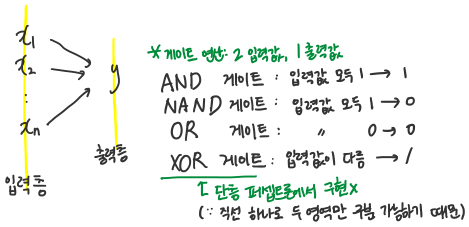 x1
x2
:
xn
입력층
y
출력층
* 게이트 연산: 2 입력값, 1 출력값
AND 게이트 : 입력값 모두 1 → 1
NAND 게이트 : 입력값 모두 1 → 0
OR 게이트 : 〃 0 → 0
XOR 게이트 : 입력값이 다름 → 1
↑ 단층 퍼셉트론에서 구현 X
(∵ 직선 하나로 두 영역만 구분 가능하기 때문)